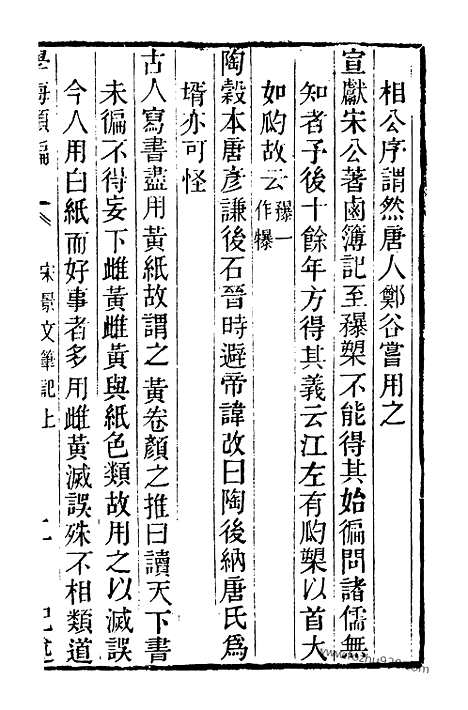 相公序謂然唐人鄭谷嘗用之
宣獻宋公著鹵簿記至𣝣槊不能得其始徧問諸儒無
知者予後十餘年方得其義云江左有瓟槊以首大
如瓟故云𣝣一作犦
陶穀本唐彥謙後石晉時避帝諱改曰陶後納唐氏爲
壻亦可怪
古人寫書盡用黃紙故謂之黃卷顏之推曰讀天下書
未徧不得妄下雌黃雌黃與紙色類故用之以滅誤
今人用白紙而好事者多用雌黃滅誤殊不相類道
學海類編
宋景文筆記上
二
記述